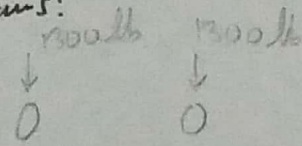 1300lb 1300lb
↓ ↓
0 0